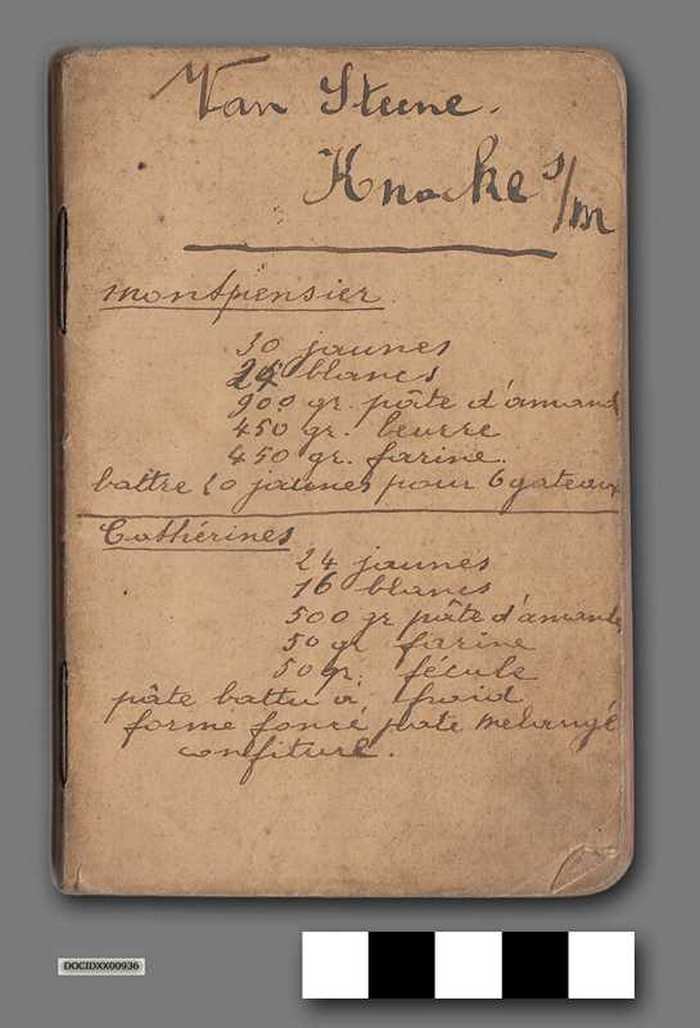 Van Steene.
Knocke s/m
Montpensier.
30 jaunes
blancs
900 gr. pâte d'amand
450 gr. beurre
450 gr. farine.
battre 10 jaunes pour 6 gateaux
Cathérines
24 jaunes
16 blancs
500 gr pâte d'amande
50 gr farine
50 gr. fécule
pâte battu à froid
forme foncé pate melangé
confiture.
DOCIDXX00936